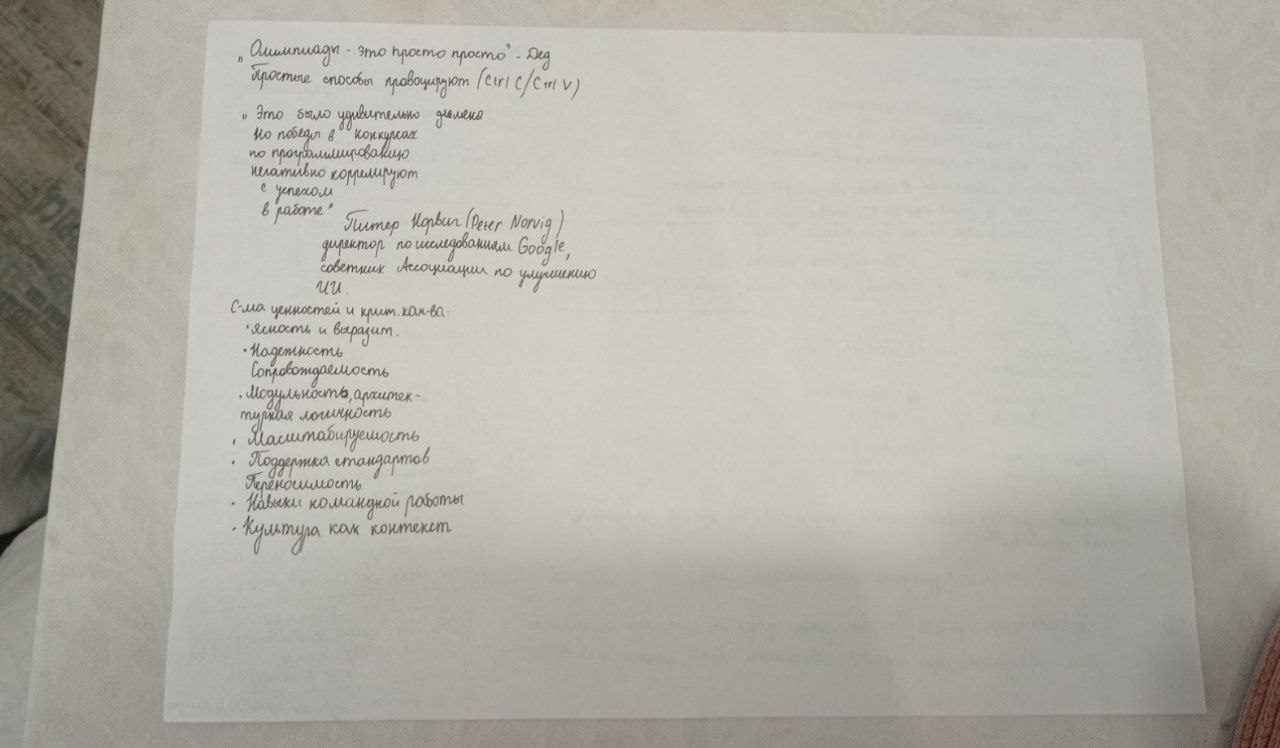 „Олимпиады - это просто просто" - Дед
Простые способы провоцируют (Ctrl C/Ctrl V)
„Это было удивительно дляменя
Но победы в конкурсах
по программированию
негативно коррелируют
с успехом
в работе"
Питер Норвиг (Peter Norvig)
директор по исследованиям Google,
советник Ассоциации по улучшению
ИИ.
С-ма ценностей и крит. кач-ва:
· ясность и выразит.
· Надежность
Сопровождаемость
· Модульность, архитек-
турная логичность
· Масштабируемость
· Поддержка стандартов
Переносимость
· Навыки командной работы
· Культура как контекст